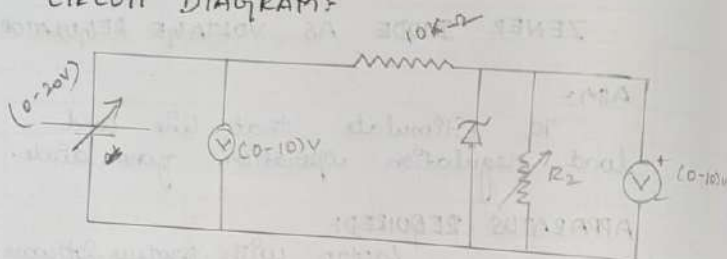 CIRCUIT DIAGRAM:
10K Ω
(0-20V)
V (0-10)V
R2
V + (0-10)V
-